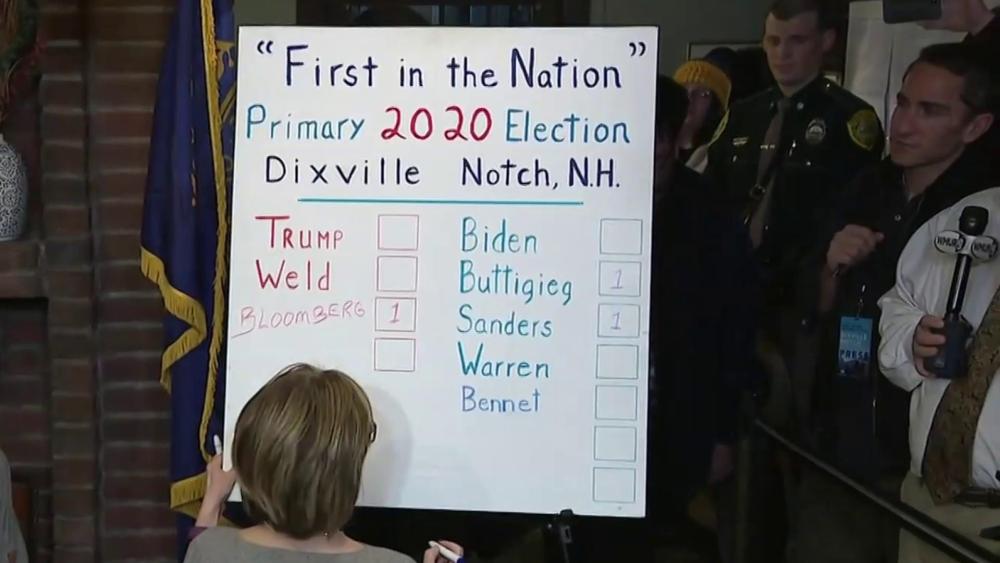 “First in the Nation”
Primary 2020 Election
Dixville Notch, N.H.
TRUMP
Weld
BLOOMBERG 1
Biden
Buttigieg 1
Sanders 1
Warren
Bennet
WMUR
WMUR
PRESS